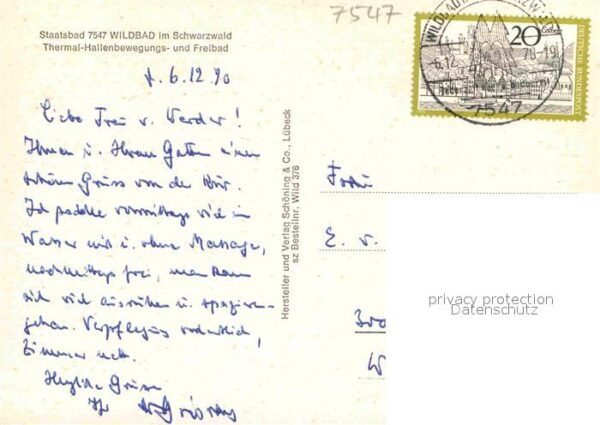 7547
Staatsbad 7547 WILDBAD im Schwarzwald
Thermal-Hallenbewegungs- und Freibad
20
DEUTSCHE BUNDESPOST
7547
Liebe Frau v. Werder!
Ihnen u. Ihrem Gatten einen
schönen Gruss von der Kur.
Ich paddle vormittags viel im
Wasser mit u. ohne Massage,
nachmittags frei, man kann
sich viel ausruhen u. spazieren-
gehen. Verpflegung ordentlich,
Zimmer nett.
Herzliche Grüsse
Ihr
Hersteller und Verlag Schöning & Co., Lübeck
sz Bestellnr. Wild 376
Frau
E. v.
privacy protection
Datenschutz